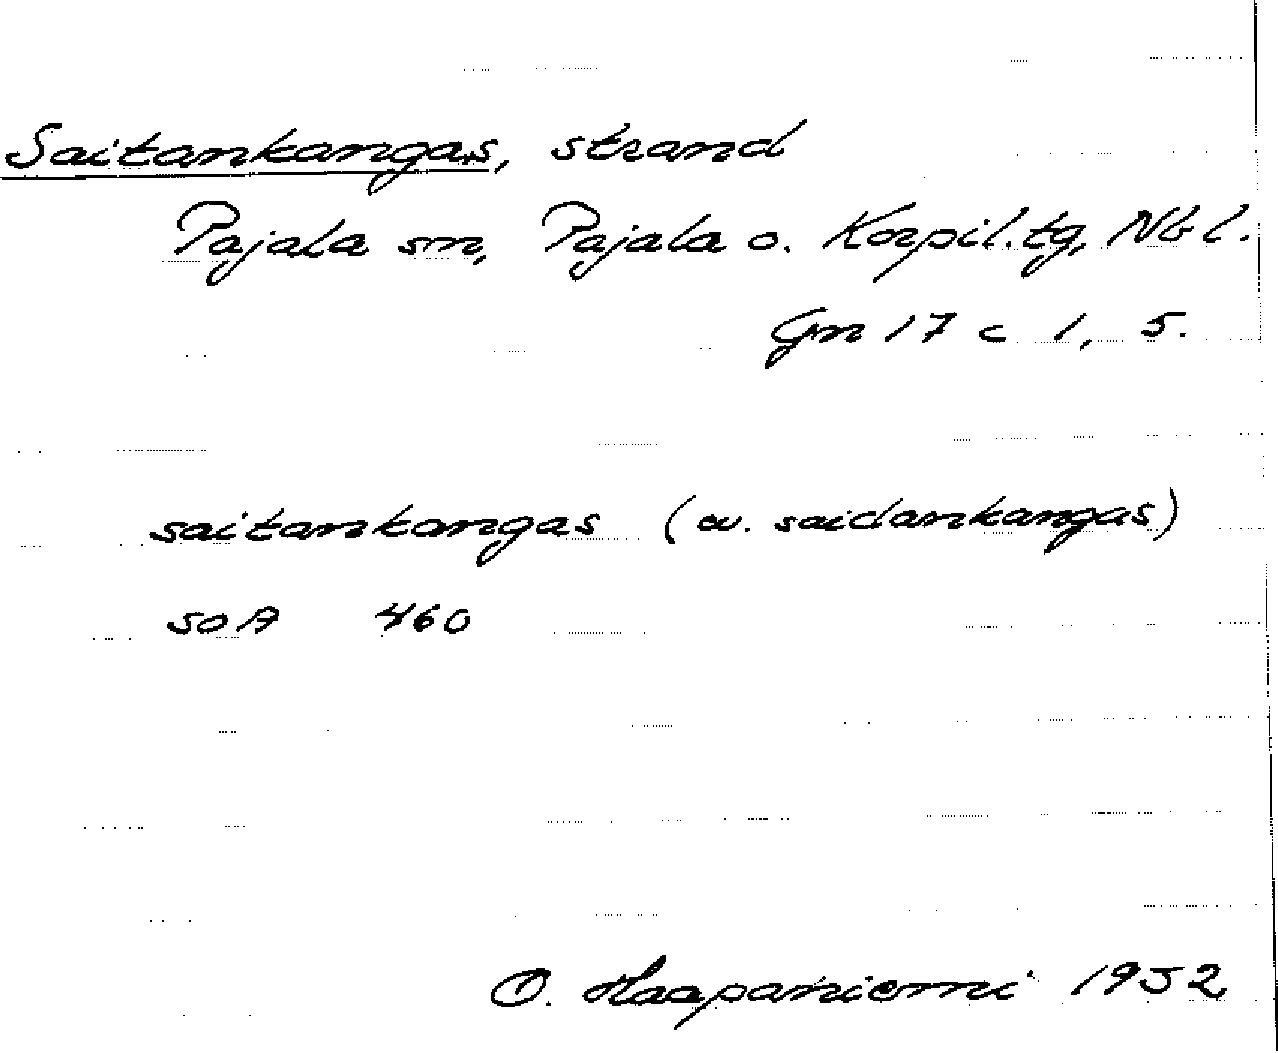 Saitankangas, strand
Pajala sn, Pajala o. Korpil. tg, Nb l.
Gn 17 c 1, 5.
saitankangas (av. saidankangas)
SOA 460
O. Haapaniemi 1952